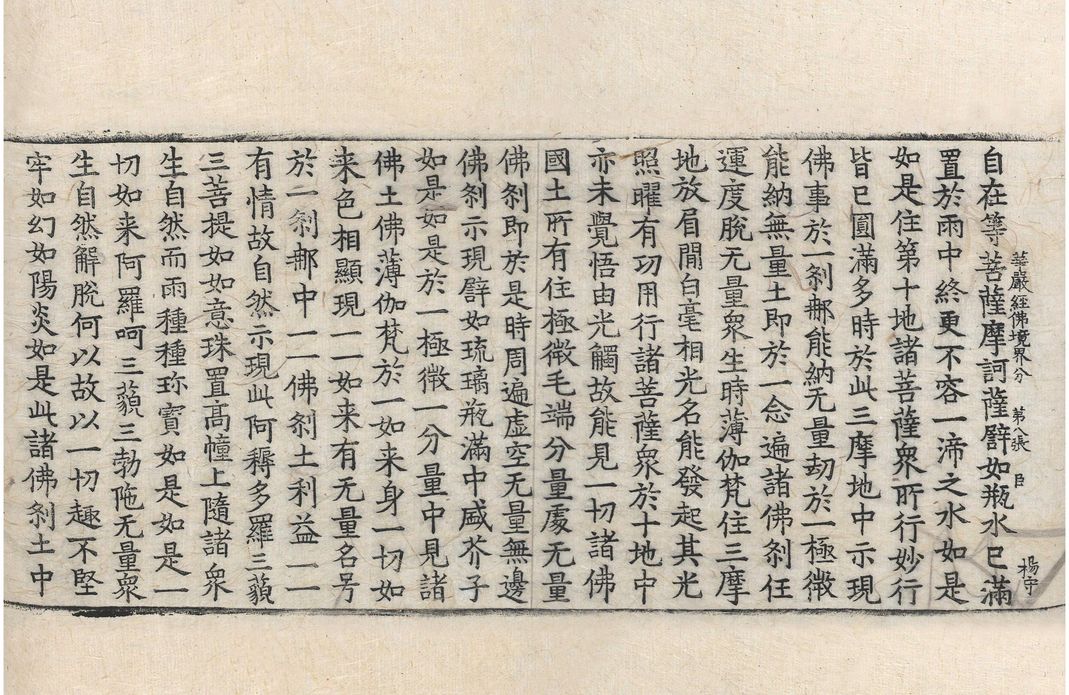 華嚴經佛境界分 第八張 臣 楊守
自在等菩薩摩訶薩譬如瓶水已滿
置於雨中終更不容一渧之水如是
如是住第十地諸菩薩衆所行妙行
皆已圓滿多時於此三摩地中示現
佛事於一刹𨙻能納无量劫於一極微
能納無量土即於一念遍諸佛刹任
運度脫无量衆生時薄伽梵住三摩
地放眉間白毫相光名能發起其光
照曜有功用行諸菩薩衆於十地中
亦未覺悟由光觸故能見一切諸佛
國土所有住極微毛端分量處无量
佛刹即於是時周遍虛空无量無邊
佛刹示現譬如琉璃瓶滿中盛芥子
如是如是於一極微一分量中見諸
佛土佛薄伽梵於一如来身一切如
来色相顯現一一如来有无量名号
於一刹𨙻中一一佛刹土利益一一
有情故自然示現此阿耨多羅三藐
三菩提如如意珠置高幢上隨諸衆
生自然而雨種種珎寶如是如是一
切如来阿羅呵三藐三勃陁无量衆
生自然解脫何以故以一切趣不堅
牢如幻如陽炎如是此諸佛刹土中